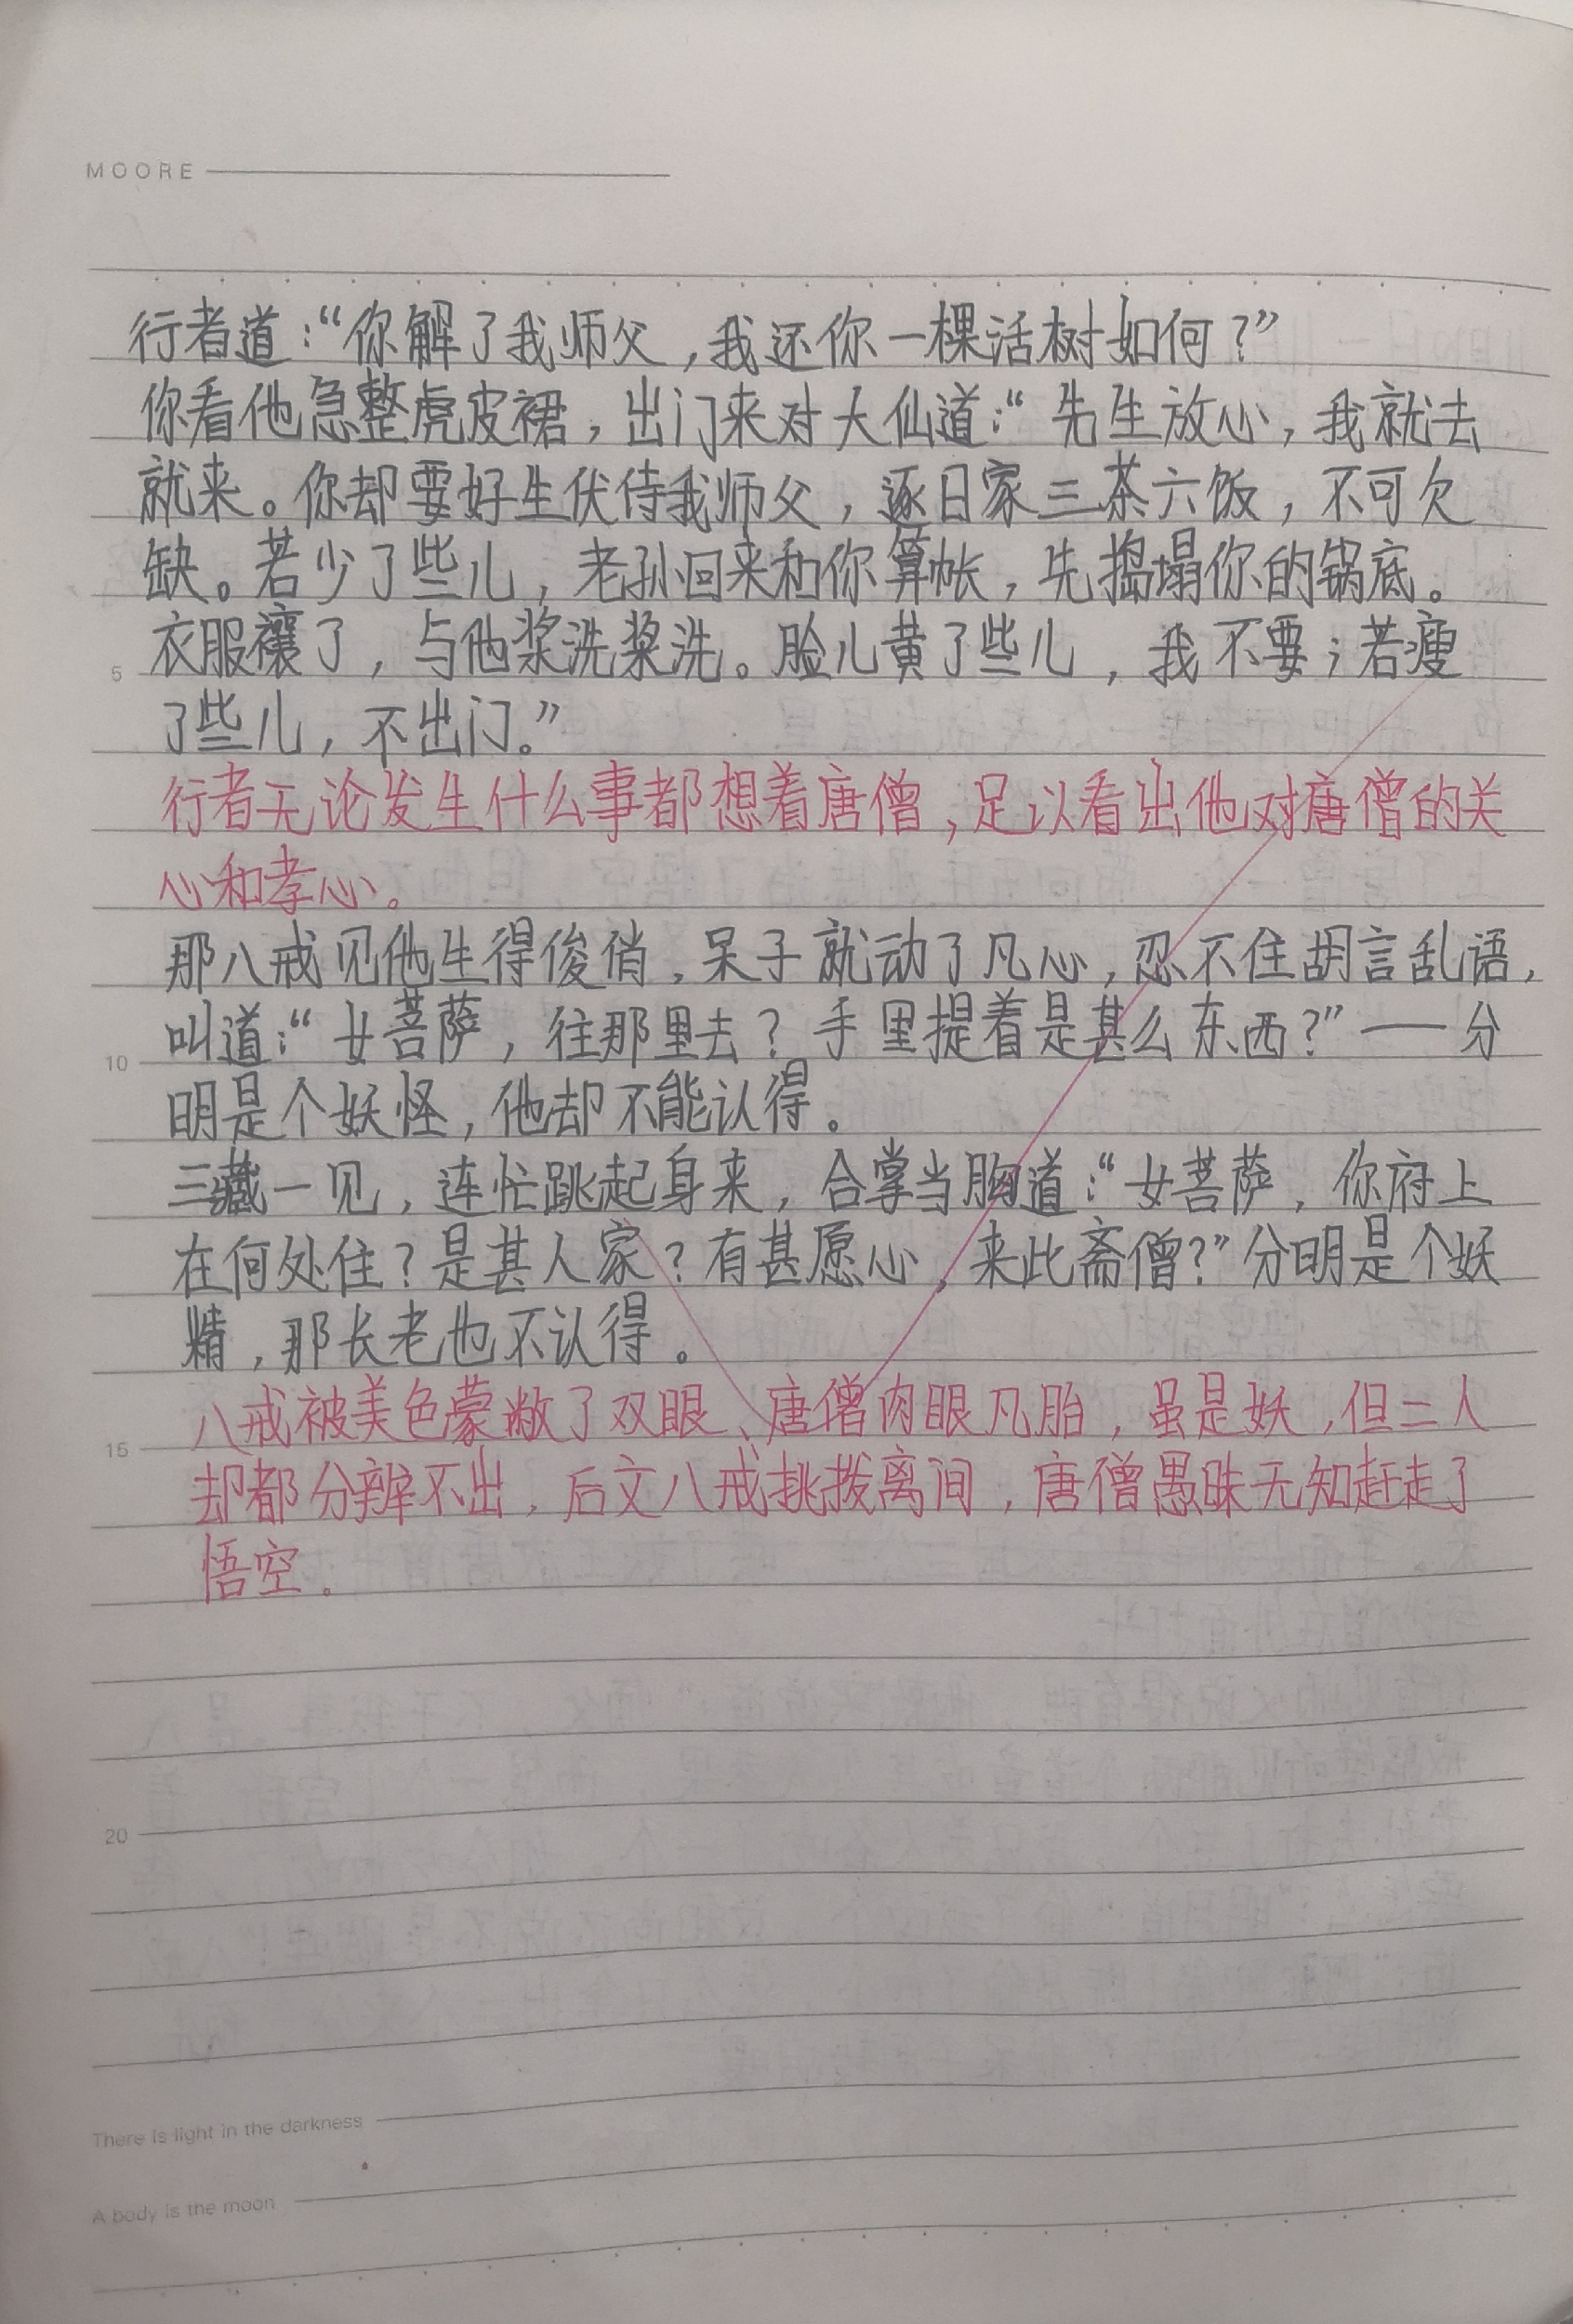 MOORE
行者道：“你解了我师父，我还你一棵活树如何？”
你看他急整虎皮裙，出门来对大仙道：“先生放心，我就去
就来。你却要好生伏侍我师父，逐日家三茶六饭，不可欠
缺。若少了些儿，老孙回来和你算帐，先捣塌你的锅底。
5 衣服禳了，与他浆洗浆洗。脸儿黄了些儿，我不要；若瘦
了些儿，不出门。”
行者无论发生什么事都想着唐僧，足以看出他对唐僧的关
心和孝心。
那八戒见他生得俊俏，呆子就动了凡心，忍不住胡言乱语，
10 叫道：“女菩萨，往那里去？手里提着是甚么东西？”——分
明是个妖怪，他却不能认得。
三藏一见，连忙跳起身来，合掌当胸道：“女菩萨，你府上
在何处住？是甚人家？有甚愿心，来此斋僧？”分明是个妖
精，那长老也不认得。
15 八戒被美色蒙敝了双眼、唐僧肉眼凡胎，虽是妖，但二人
却都分辨不出，后文八戒挑拨离间，唐僧愚昧无知赶走了
悟空。
20
There is light in the darkness
A body is the moon